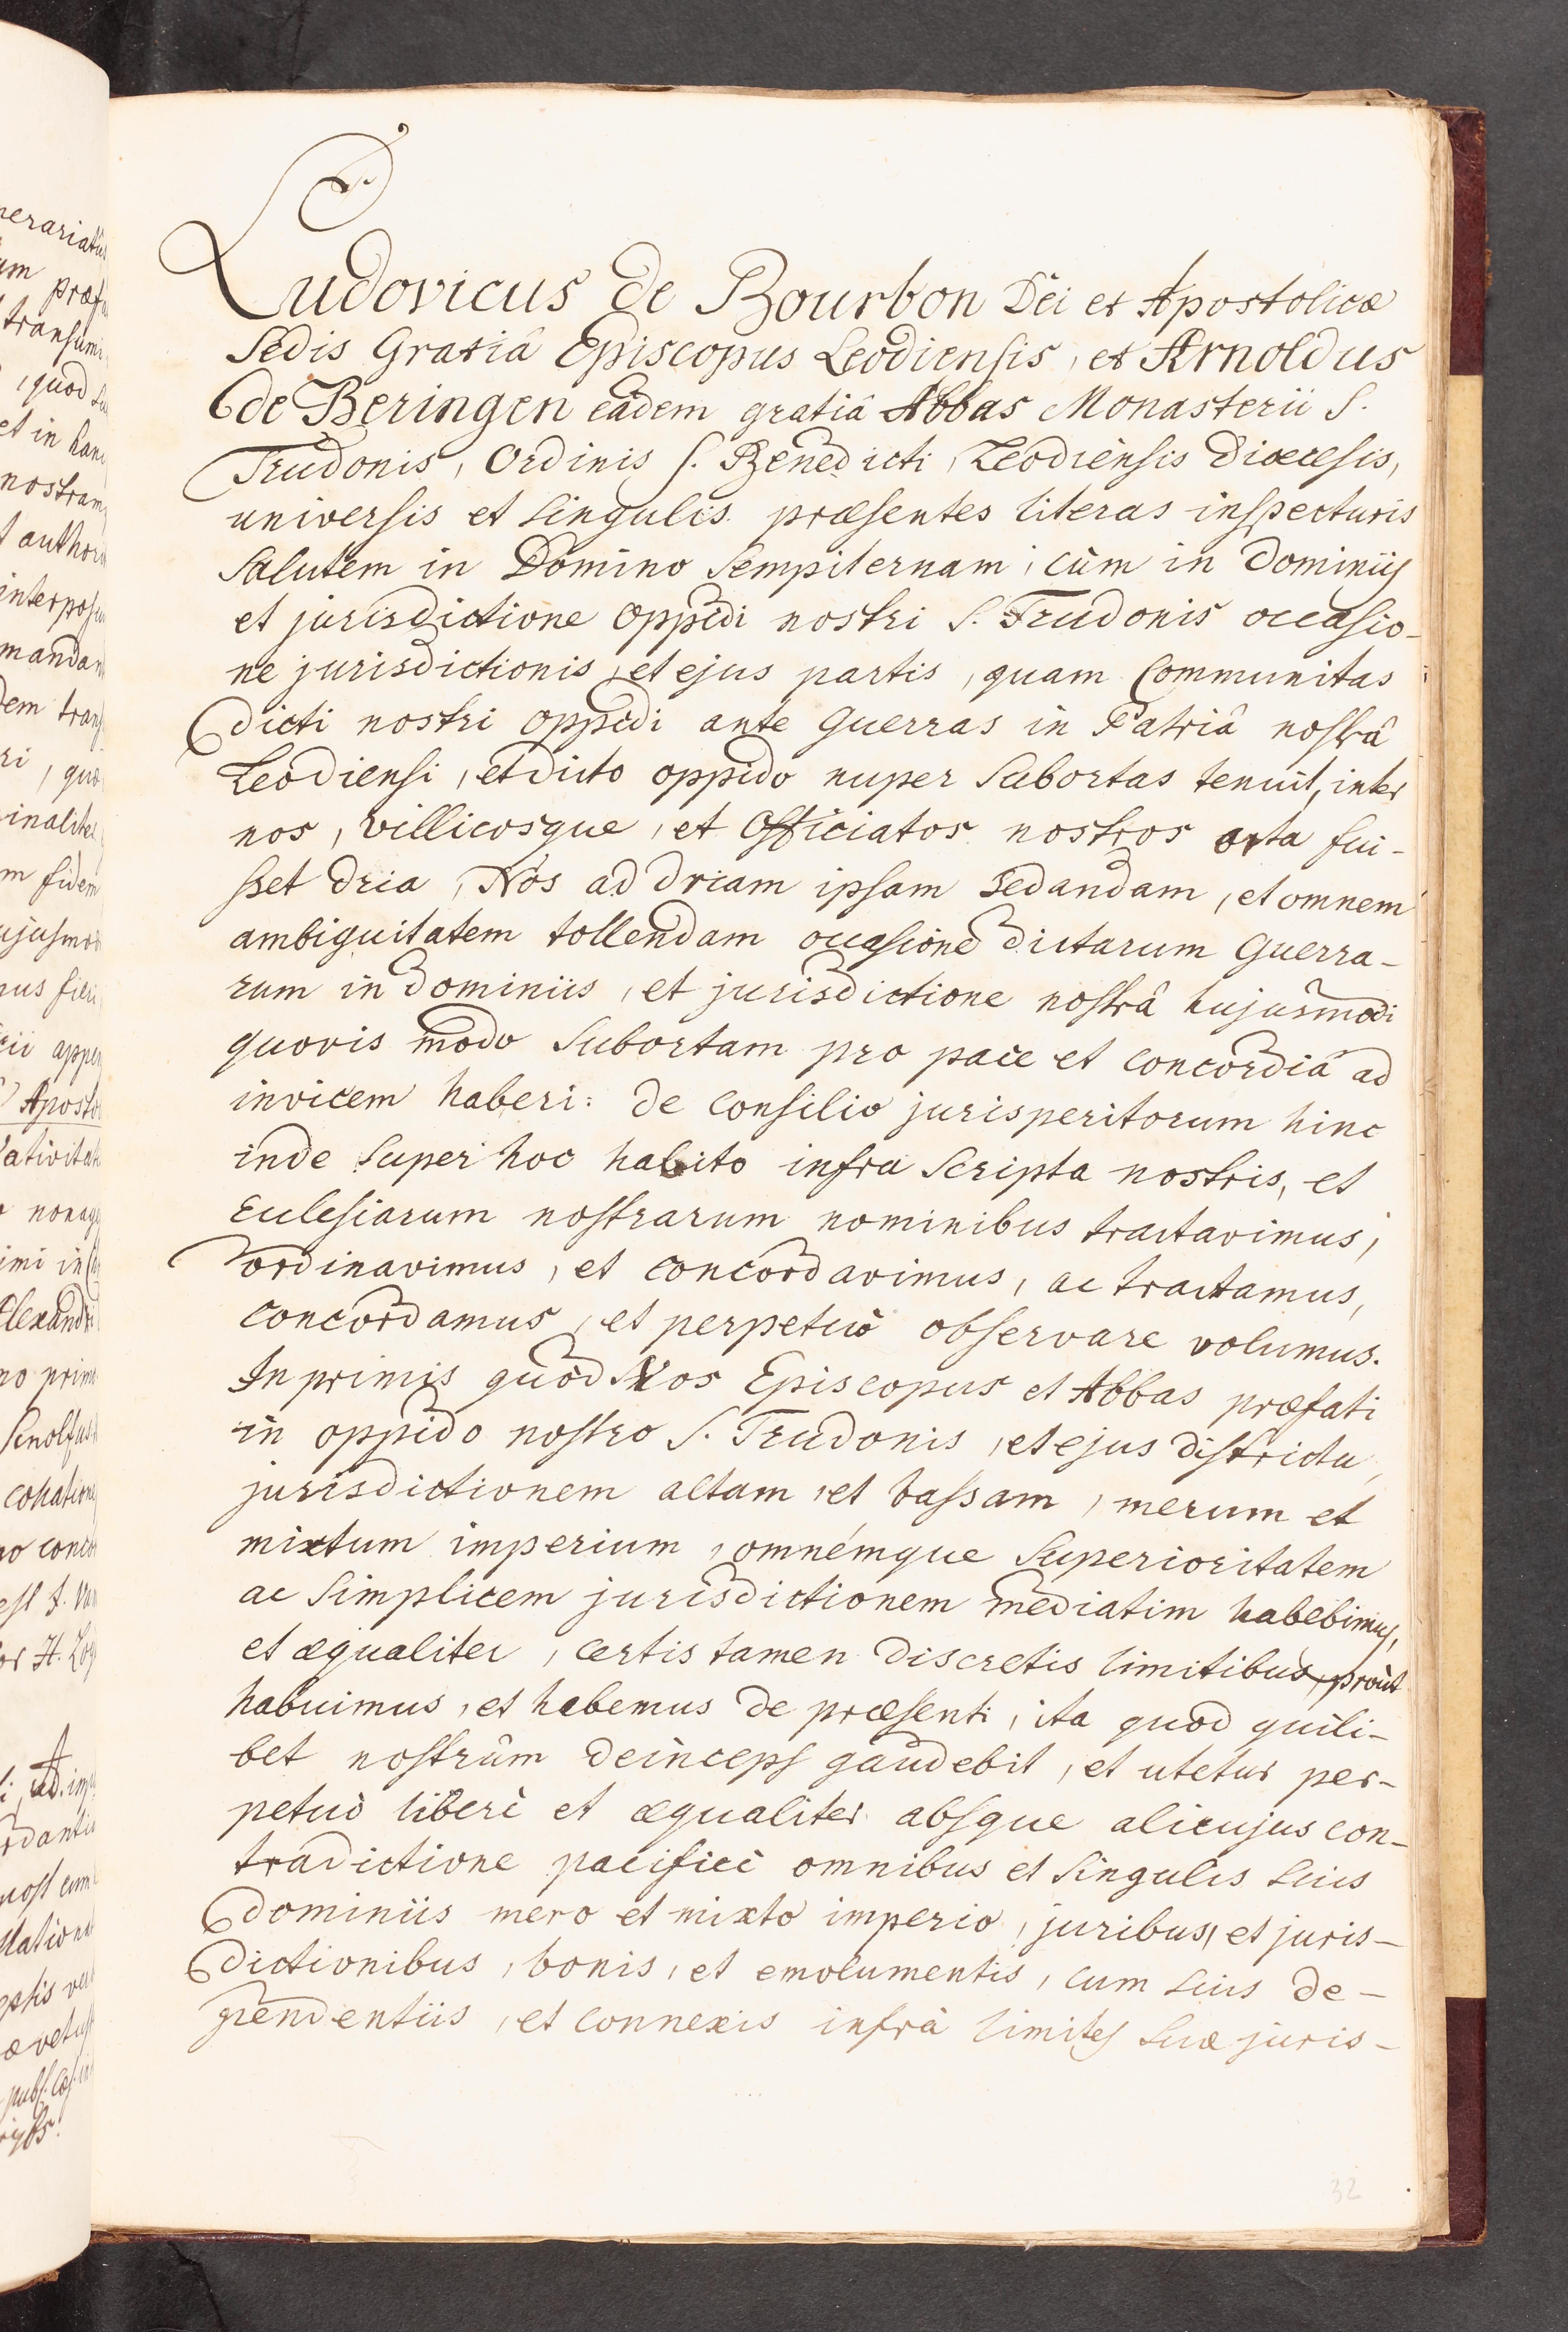 Ludovicus de Bourbon Dei et Apostolicæ
Sedis Gratiâ Episcopus Leodiensis, et Arnoldus
de Beringen eâdem gratiâ Abbas Monasterii S.
Trudonis, Ordinis S. Benedicti, Leodiensis Diœcesis,
universis et singulis præsentes literas inspecturis
Salutem in Domino Sempiternam; cùm in Dominiis
et jurisdictione oppidi nostri S. Trudonis occasio-
ne jurisdictionis, et ejus partis, quam Communitas
dicti nostri oppidi ante Guerras in Patriâ nostrâ
Leodiensi, et dicto oppido nuper Subortas tenuit, inter
nos, villicosque, et Officiatos nostros orta fui-
sset dria, Nos ad driam ipsam sedandam, et omnem
ambiguitatem tollendam occasione dictarum Guerra-
rum in Dominiis, et jurisdictione nostrâ hujusmodi
quovis modo Subortam pro pace et concordiâ ad
invicem haberi: de Consilio jurisperitorum hinc
inde super hoc habito infra Scripta nostris, et
Ecclesiarum nostrarum nominibus tractavimus,
ordinavimus, et concordavimus, ac tractamus,
concordamus, et perpetuò observare volumus.
In primis quòd Nos Episcopus et Abbas præfati
in oppido nostro S. Trudonis, et ejus districtu,
jurisdictionem altam, et bassam, merum et
mixtum imperium, omnémque Superioritatem
ac Simplicem jurisdictionem mediatim habebimus,
et æqualiter, certis tamen discretis limitibus, proùt
habuimus, et habemus de præsenti, ita quòd quili-
bet nostrûm deinceps gaudebit, et utetur per-
petuò liberè et æqualiter absque alicujus con-
tradictione pacificè omnibus et singulis suis
dominiis mero et mixto imperio, juribus, et juris-
dictionibus, bonis, et emolumentis, cum suis de-
pendentiis, et connexis infrà limites suæ juris-
32